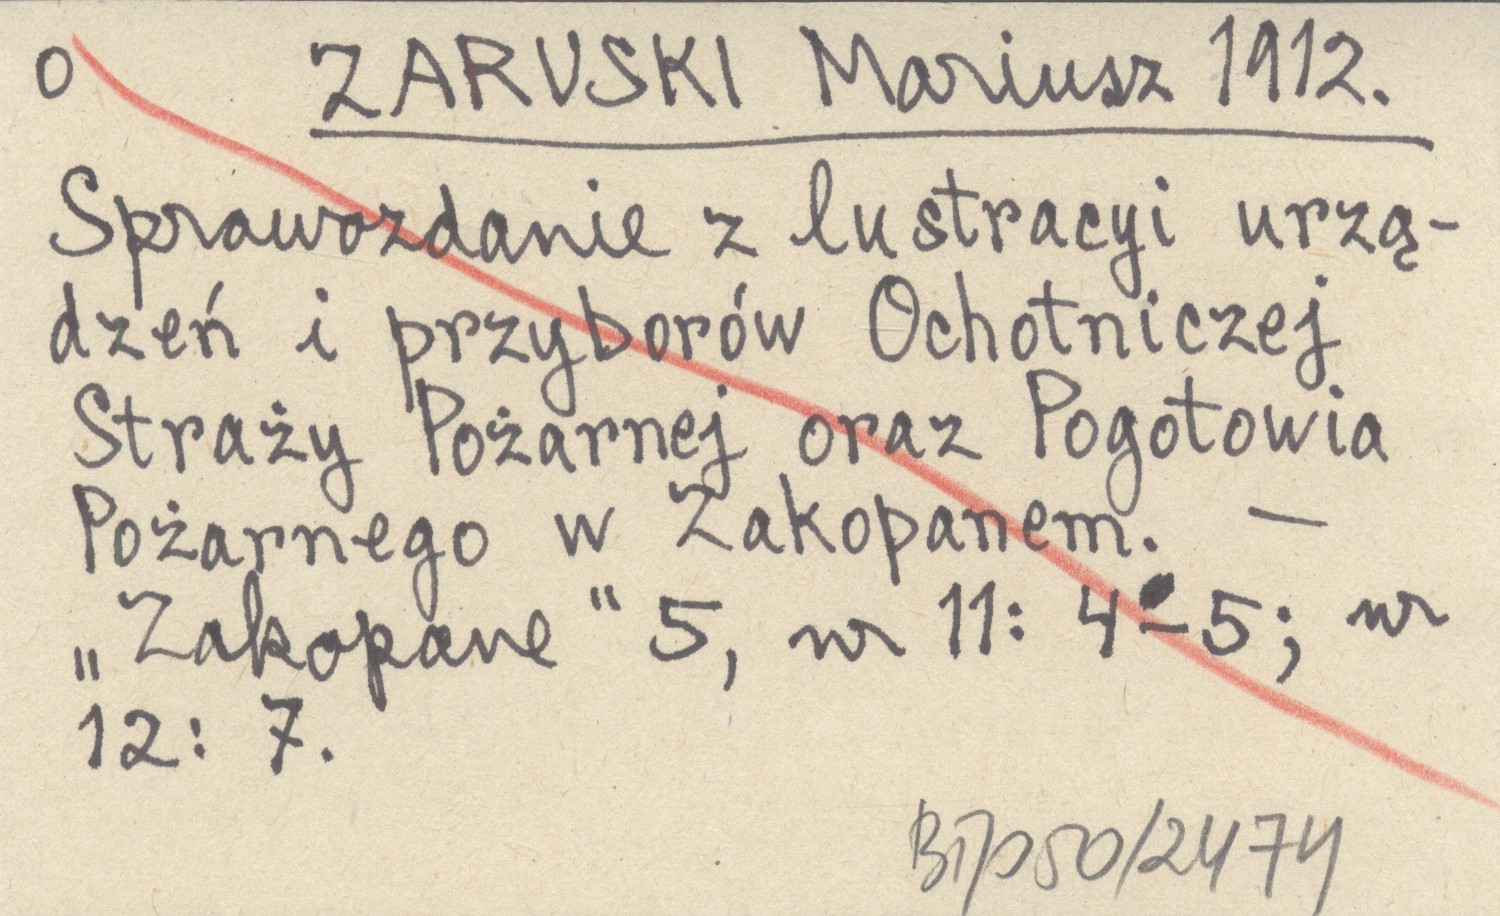 o ZARUSKI Mariusz 1912.
Sprawozdanie z lustracyi urzą-
dzeń i przyborów Ochotniczej
Straży Pożarnej oraz Pogotowia
Pożarnego w Zakopanem. —
„Zakopane“ 5, nr 11: 4-5; nr
12: 7.